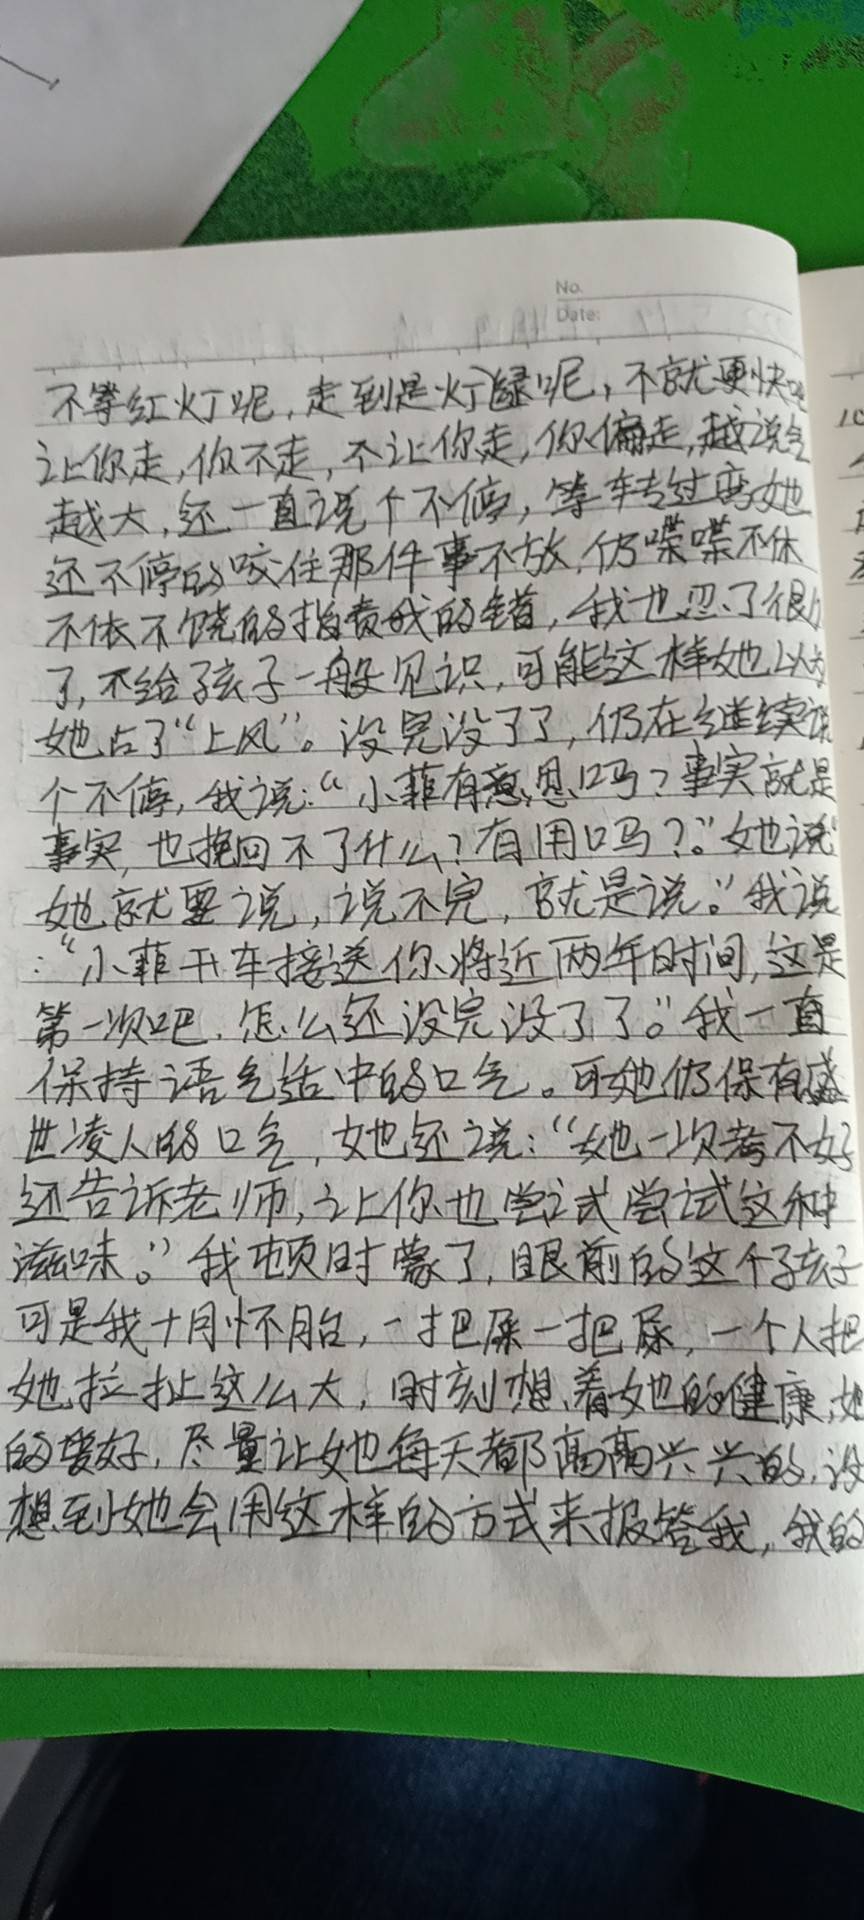 No.
Date:
不等红灯呢，走到是灯绿呢，不就更快吧
让你走，你不走，不让你走，你偏走，越说气
越大，还一直说个不停，等车转过弯她
还不停的咬住那件事不放，仍喋喋不休
不依不饶的指责我的错，我也忍了很久
了，不给孩子一般见识，可能这样她以为
她占了“上风”。没完没了了，仍在继续说
个不停，我说：“小菲有意思吗？事实就是
事实，也挽回不了什么？有用吗？”她说“
她就要说，说不完，就是说。”我说
：“小菲开车接送你将近两年时间，这是
第一次吧，怎么还没完没了了。”我一直
保持语气适中的口气。可她仍保有盛
世凌人的口气，她还说：“她一次考不好
还告诉老师，让你也尝试尝试这种
滋味。”我顿时蒙了，眼前的这个孩子
可是我十月怀胎，一把屎一把尿，一个人把
她拉扯这么大，时刻想着她的健康，她
的爱好，尽量让她每天都高高兴兴的，没
想到她会用这样的方式来报答我，我的